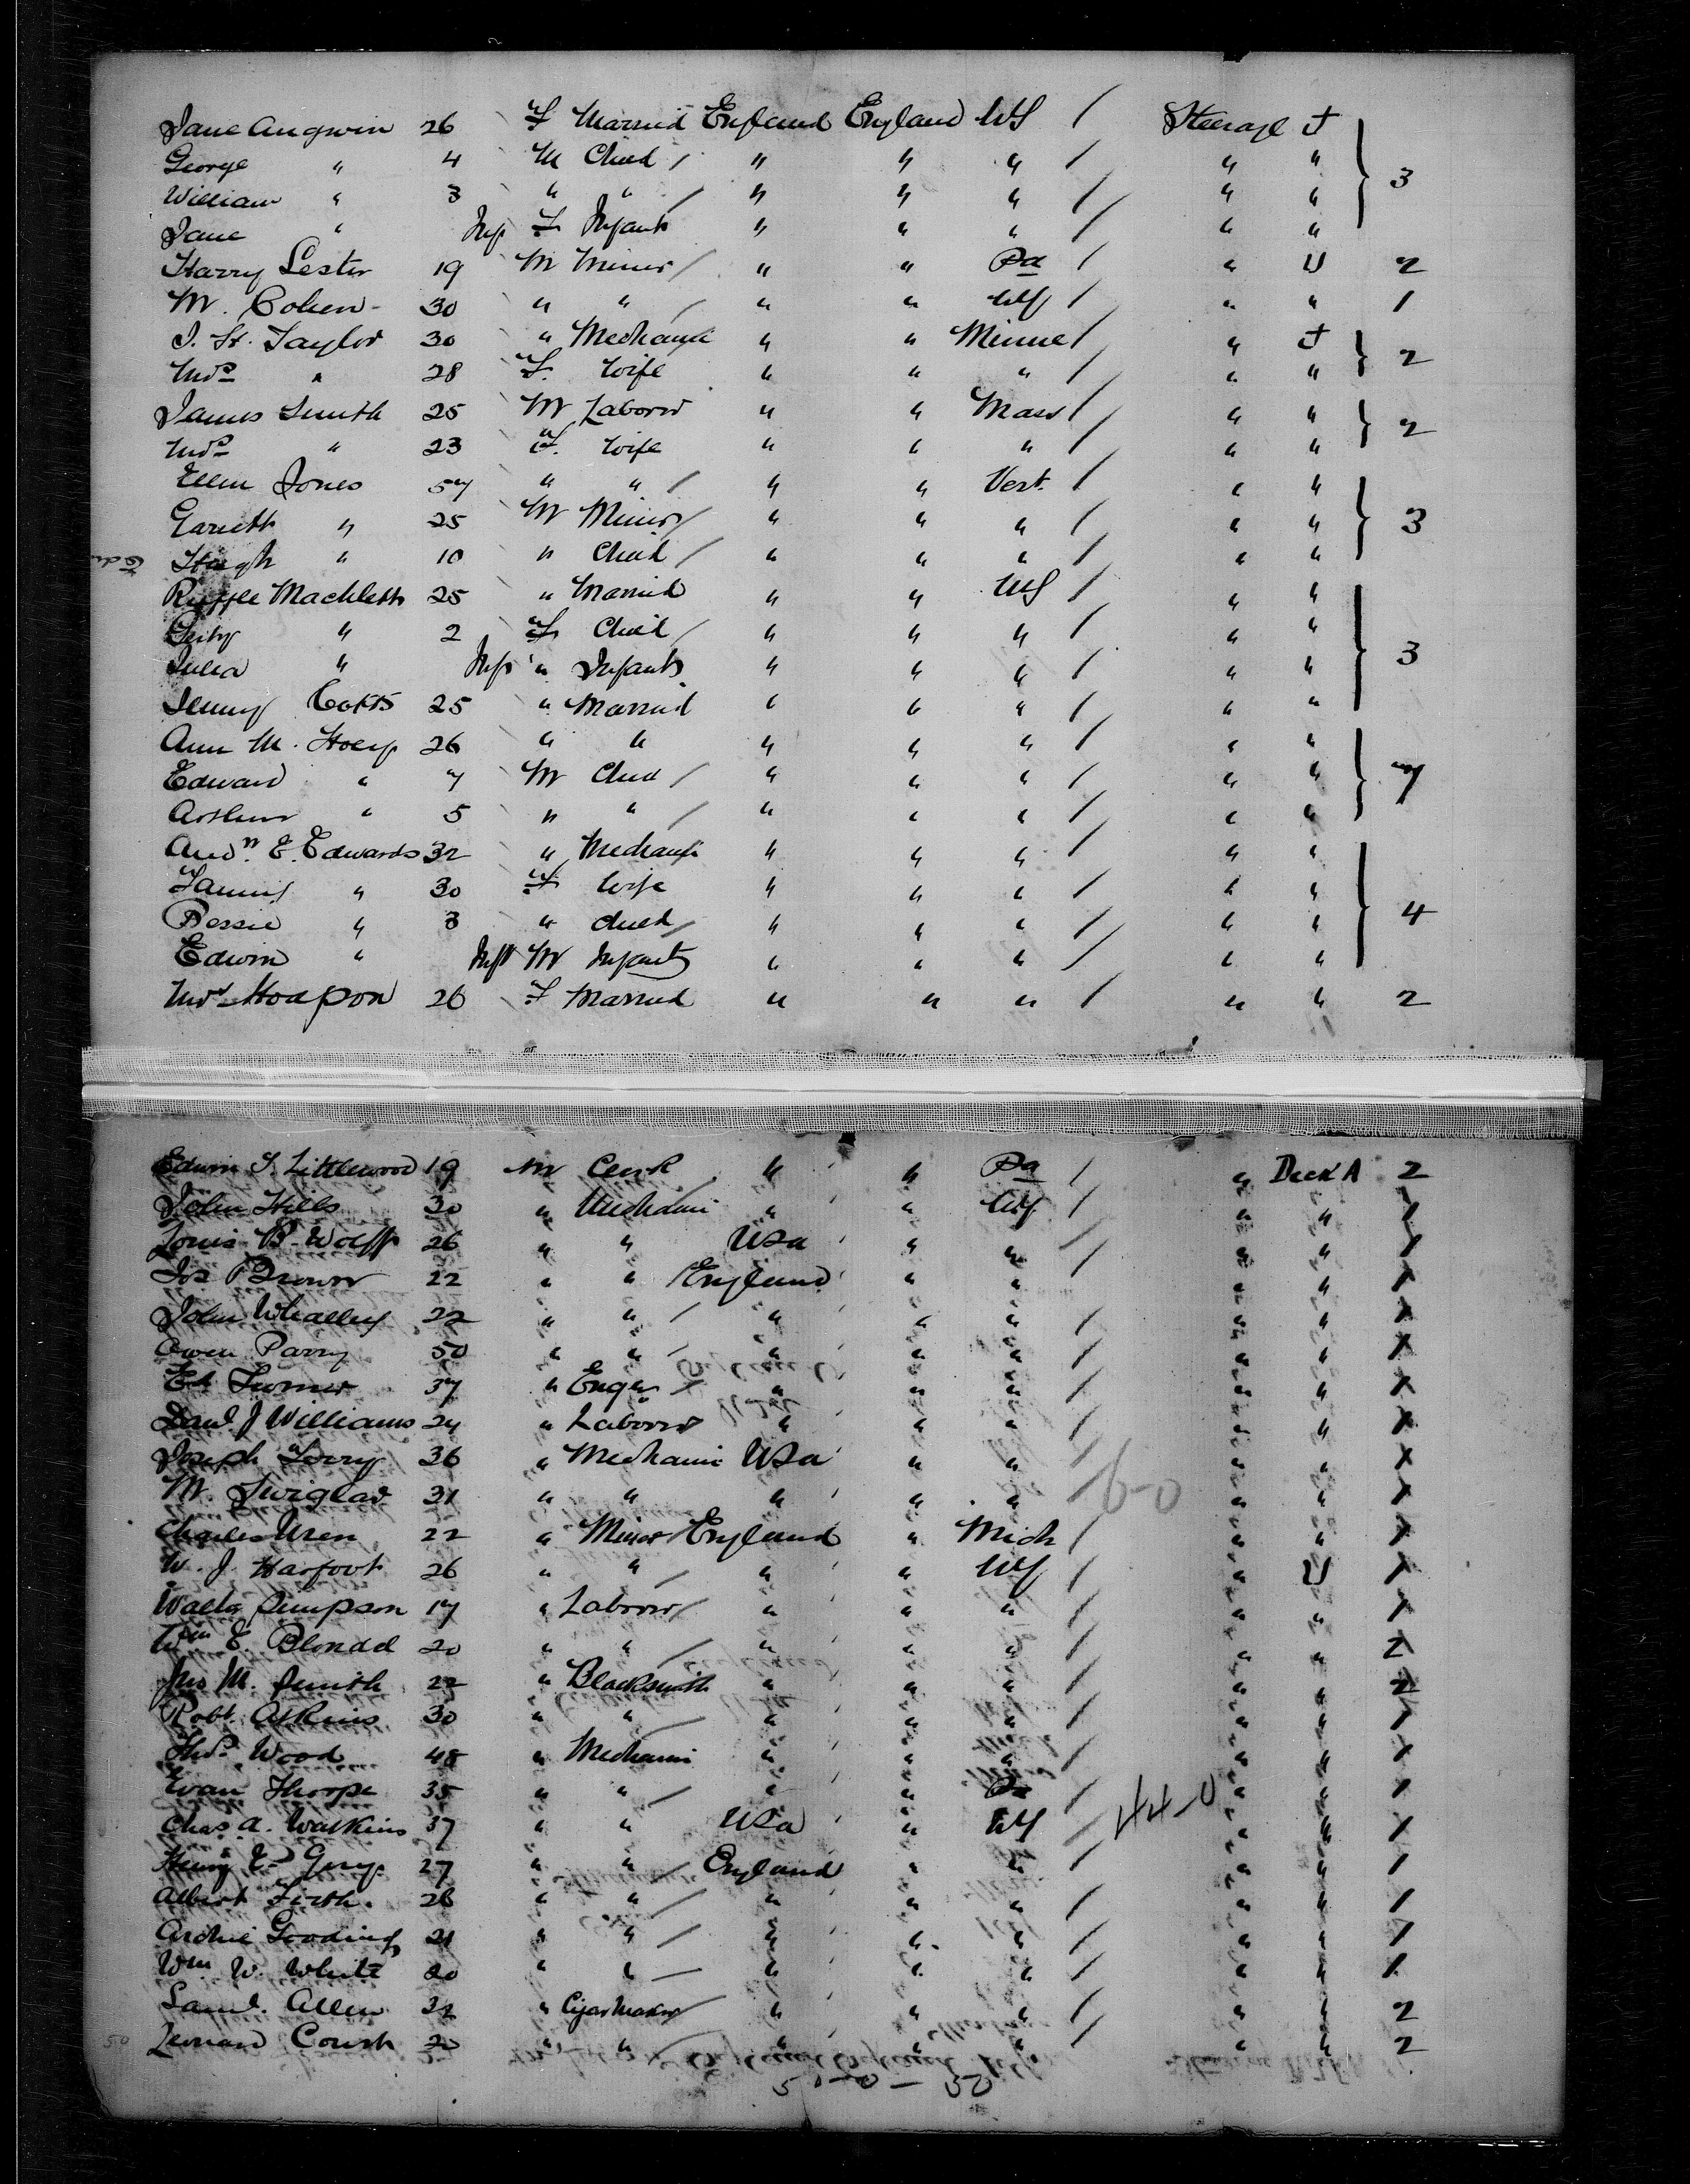 Jane Angwin 26 F Married England England NY / Steerage J
George " 4 M Child / " " " / " " } 3
William " 3 " " / " " " / " "
Jane " Inf F Infant " " " / " "
Harry Lester 19 M Miner / " " Pa / " U 2
M. Cohen 30 " " / " " NY / " " 1
J. H. Taylor 30 " Mechanic " " Minne / " J } 2
Mrs " 28 F. Wife " " " / " "
James Smith 25 M Laborer " " Mass / " " } 2
Mrs " 23 F. Wife " " " / " "
Ellen Jones 57 " " / " " Vert. / " "
Garieth " 25 M Miner / " " " / " " } 3
Hugh " 10 " Child / " " " / " "
Machlett 25 " Married " " NY / " "
" 2 F Child / " " " / " "
Julia " Inf " Infant " " " / " " } 3
Jenny Cotts 25 " Married " " " / " "
Ann M. 26 " " " " " / " "
Edward " 7 M Child / " " " / " " } 7
Arthur " 5 " " / " " " / " "
And.n E. Edwards 32 " Mechanic " " " / " "
Fanny " 30 F Wife " " " / " "
Bessie " 3 " Child / " " " / " " } 4
Edwin " Inf M Infant " " " / " "
Mrs Hodpon 26 F Married " " " / " " 2
Edwin S. Littlewood 19 M Clerk " " Pa / " Deck A 2
John Hills 30 " Mechanic " " NY / " " 1
Louis B. Wolff 26 " " USa " " / " " 1
Jos Brown 22 " " / England " " / " " 1
John Whalley 22 " " / " " " / " " 1
Owen Parry 50 " " / " " " / " " 1
Ed Turner 37 " Engr / " " " / " " 1
Danl J Williams 24 " Laborer " " " / " " 1
Joseph Torry 36 " Mechanic USa " " / " " 1
M. 31 " " " " " / 6-0 " " 1
Charles Uren 22 " Miner / England " Mich / " " 1
W. J. Harfoot 26 " " / " " NY / " U 1
Walter Simpson 17 " Laborer / " " " / " " 1
Wm E. Blondel 20 " " / " " " / " " 2
Jno M. Smith 22 " Blacksmith " " " / " " 2
Robt. Atkins 30 " " / " " " / " " 1
Thos. Wood 48 " Mechanic " " " / " " 1
Evan Thorpe 35 " " / " " Pa / " " 1
Chas A. Watkins 37 " " USa " NY / 44-0 " " 1
Henry E. 27 " " / England " " / " " 1
Albert Firth. 26 " " / " " " / " " 1
Archie Gooding 21 " " / " " " / " " 1
Wm W. White 20 " " / " " " / " " 1
Saml. Allen 32 " Cigar Maker / " " " / " " 2
50 Leonard Court 20 " " " " " / " " 2